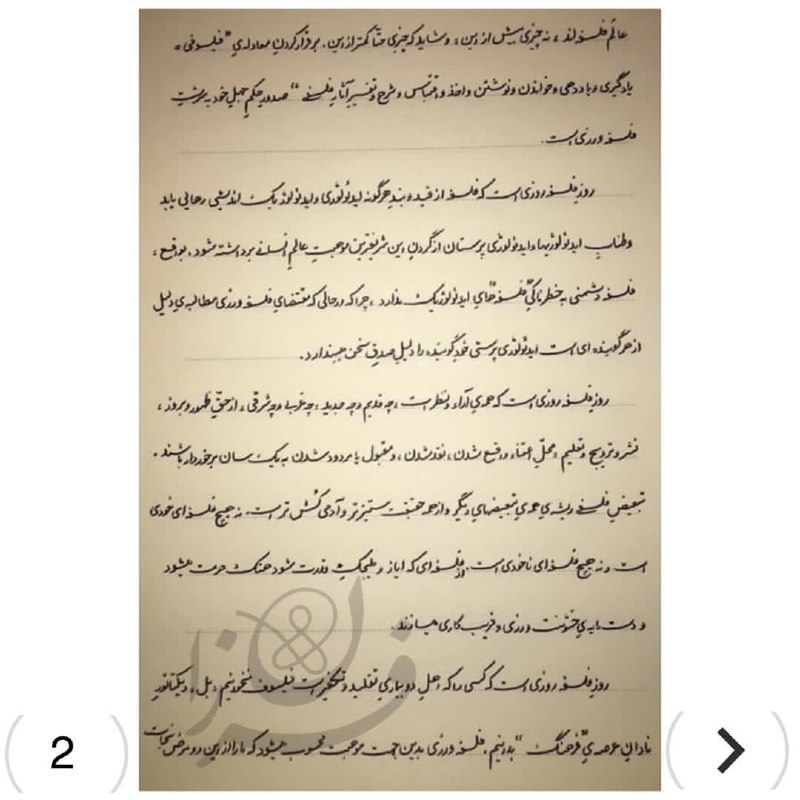 عالم فلسفه اند، نه چیزی بیش از این، و شاید که چیزی حتّا کمتر از این. برقرار کردن معادله‌ی "فیلسوفی =
یادگیری و یاددهی و خواندن و نوشتن و اخذ و اقتباس و شرح و تفسیر آثار فلسفی" صدور حکم جهلِ خود به
فلسفه ورزی است.
روزِ فلسفه روزی است که فلسفه از قید و بندِ هرگونه ایدئولوژی و ایدئولوژیک اندیشی رهایی یابد
و طنابِ ایدئولوژیها و ایدئولوژی پرستان از گردنِ این شریفترین موهبتِ عالمِ انسانی برداشته شود. بواقع،
فلسفه دشمنی به خطرناکیِ "فلسفه"های ایدئولوژیک ندارد، چرا که در حالی که مقتضای فلسفه ورزی مطالبه‌ی دلیل
از هر گوینده ای است ایدئولوژی پرستی خودِ گوینده را دلیلِ صدقِ سخن میپندارد.
روزِ فلسفه روزی است که همه‌ی آراء و نظرات، چه قدیم و چه جدید، چه غربی و چه شرقی، از حقِّ ظهور و بروز،
نشر و ترویج و تعلیم، محلِّ اعتناء واقع شدن، نقد شدن، و مقبول یا مردود شدن به یک سان برخوردار باشند.
تبعیضِ فلسفی ریشه‌ی همه‌ی تبعیضهای دیگر و از همه حقیقت ستیزتر و آدمی کُش تر است. نه هیچ فلسفه ای خودی
است و نه هیچ فلسفه ای ناخودی است. از فلسفه ای که ایاز و ملیجکِ قدرت شود هتک حرمت میشود
و دست مایه‌ی خشونت ورزی و فریب کاری میسازند.
روزِ فلسفه روزی است که کسی را که اهلِ دو بیماریِ تقلید و تکفیر است فیلسوف نخوانیم، بل، دیکتاتورِ
نادانِ عرصه‌ی "فرهنگ" بدانیم. فلسفه ورزی بدین جهت موهبت محسوب میشود که ما را از این دو مرض نجات
فـرازا
2